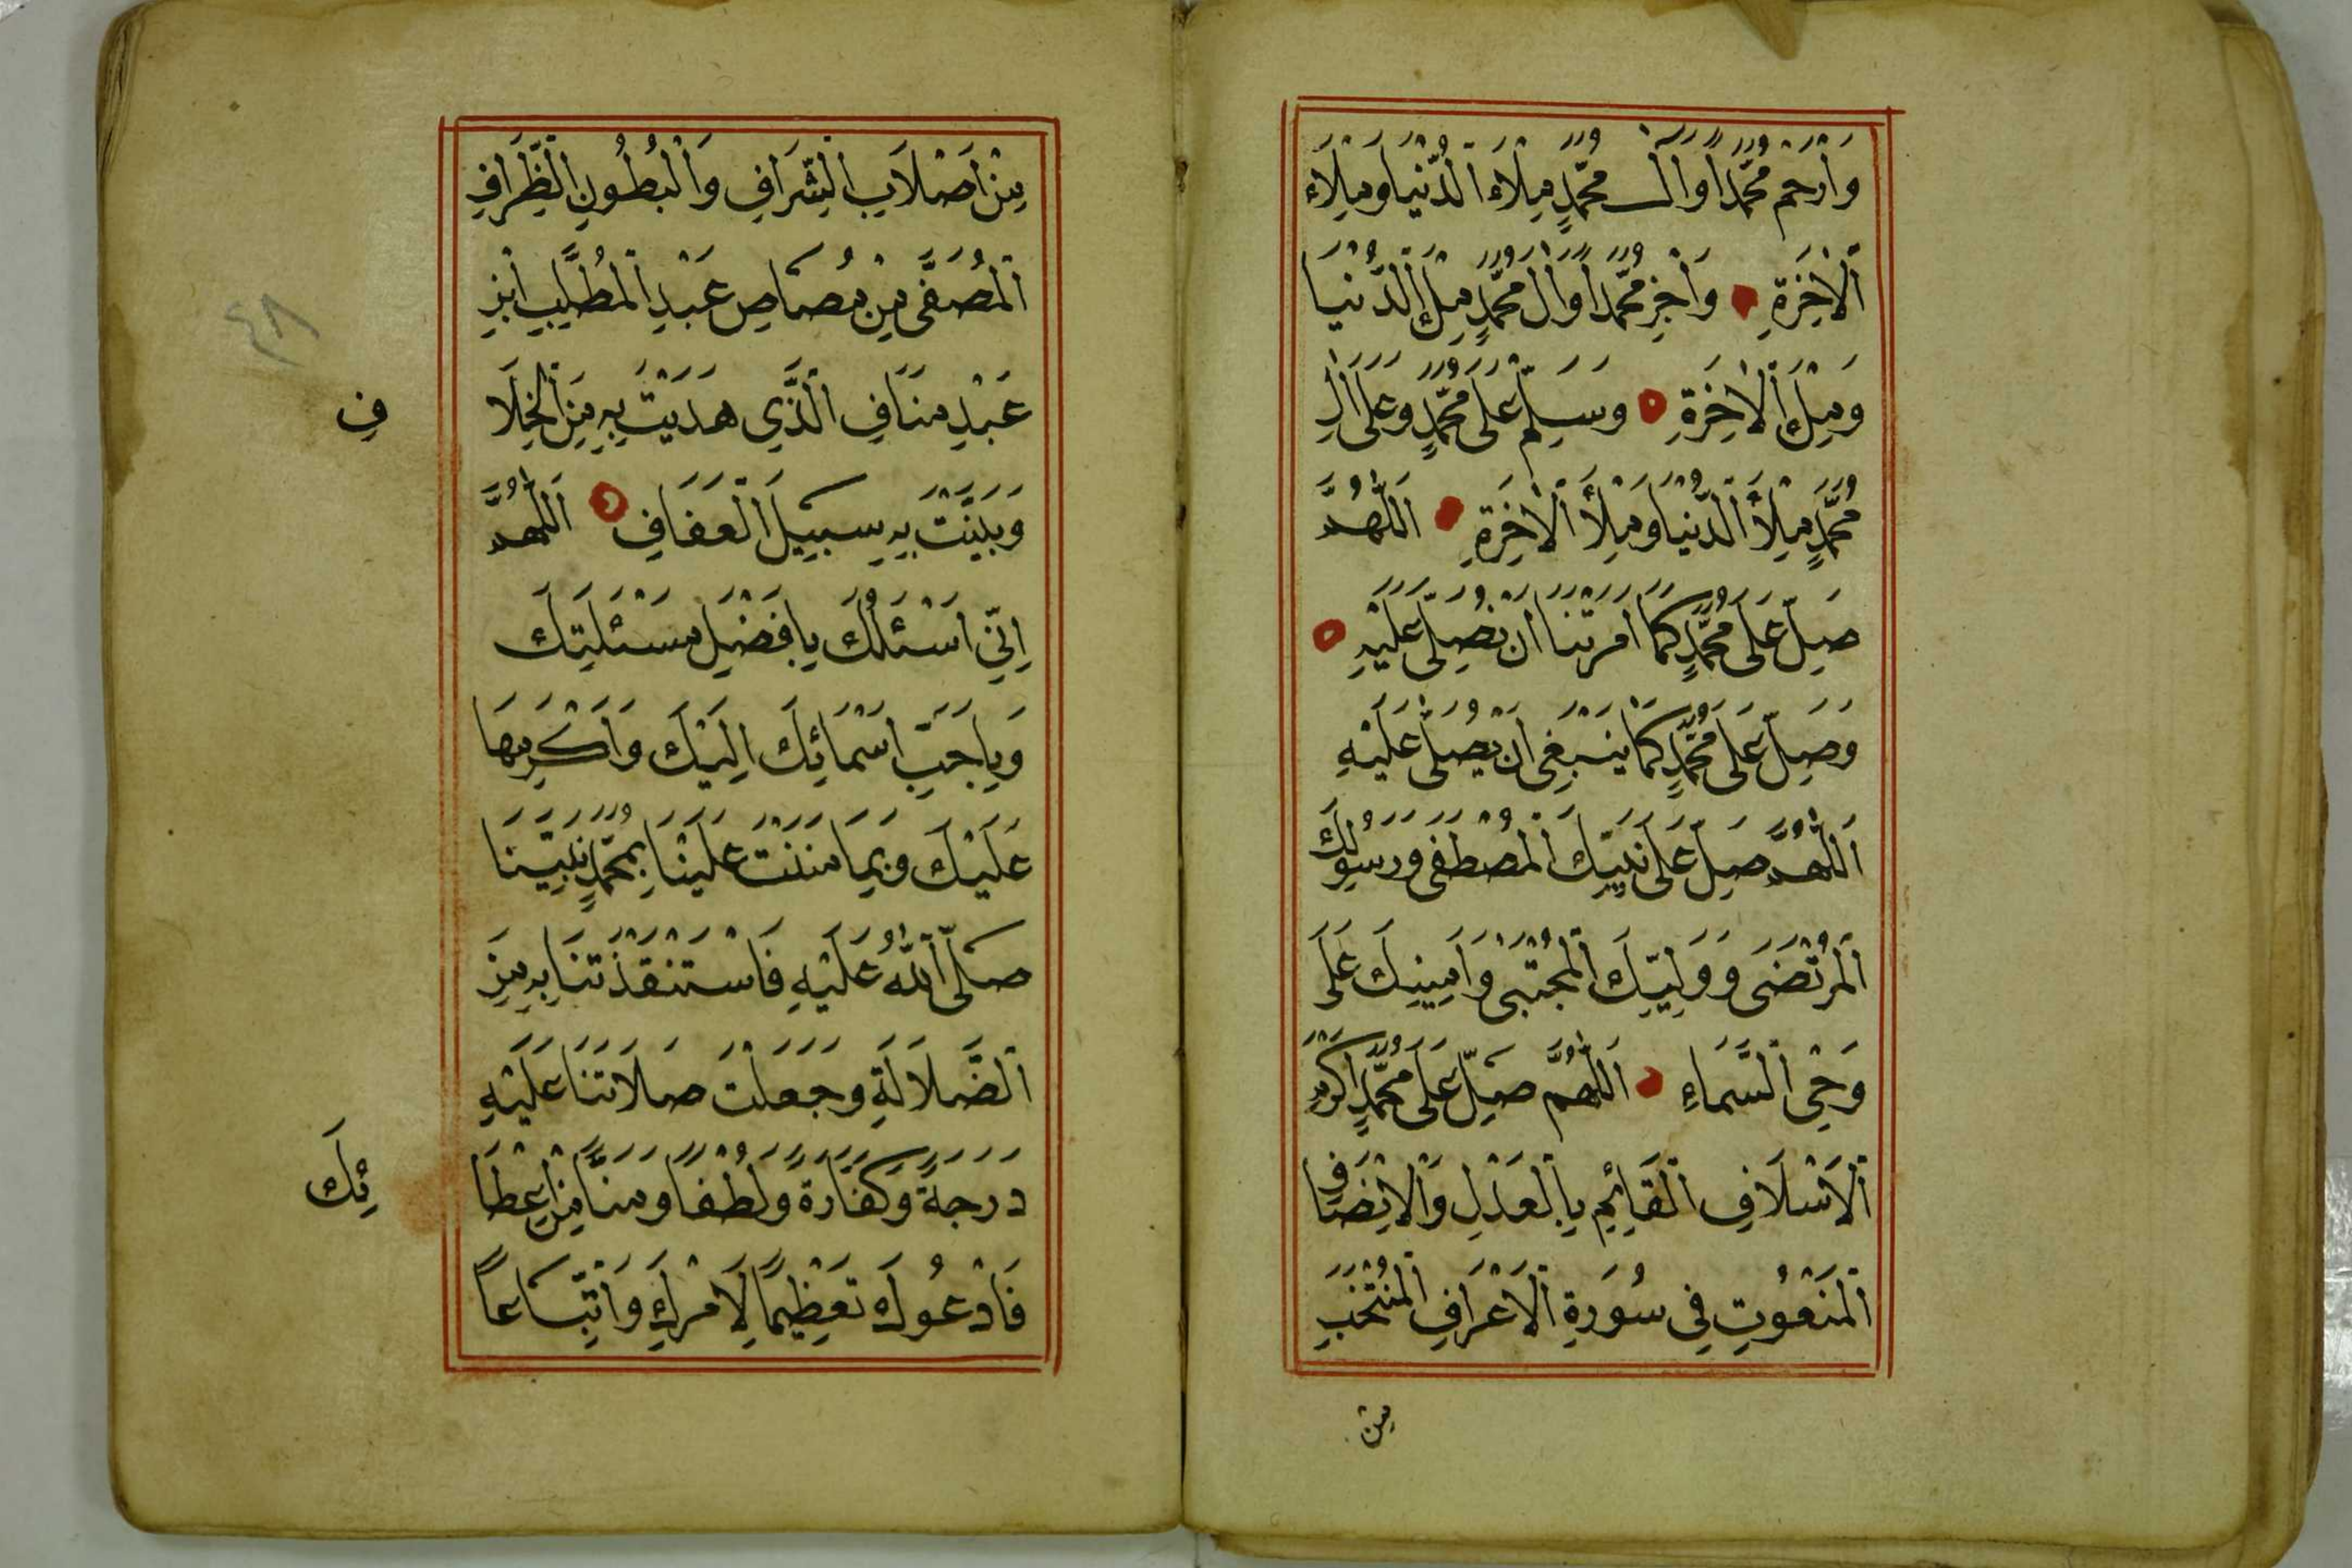 وَارْحَمْ مُحَمَّدًا وَاٰلَ مُحَمَّدٍ مِلَاءَ الدُّنْيَا وَمِلَاءَ
الْاٰخِرَةِ وَاَجْزِ مُحَمَّدًا وَاٰلَ مُحَمَّدٍ مِلْأَ الدُّنْيَا
وَمِلْأَ الْاٰخِرَةِ وَسَلِّمْ عَلٰى مُحَمَّدٍ وَعَلٰى اٰلِ
مُحَمَّدٍ مِلْأَ الدُّنْيَا وَمِلْأَ الْاٰخِرَةِ اَللّٰهُمَّ
صَلِّ عَلٰى مُحَمَّدٍ كَمَا اَمَرْتَنَا اَنْ نُصَلِّيَ عَلَيْهِ
وَصَلِّ عَلٰى مُحَمَّدٍ كَمَا يَنْبَغِى اَنْ يُصَلّٰى عَلَيْهِ
اَللّٰهُمَّ صَلِّ عَلٰى نَبِيِّكَ الْمُصْطَفٰى وَرَسُولِكَ
الْمُرْتَضٰى وَوَلِيِّكَ الْمُجْتَبٰى وَاَمِينِكَ عَلٰى
وَحْىِ السَّمَاءِ اَللّٰهُمَّ صَلِّ عَلٰى مُحَمَّدٍ اَكْرَمِ
الْاَسْلَافِ الْقَائِمِ بِالْعَدْلِ وَالْاِنْصَافِ
الْمَنْعُوتِ فِى سُورَةِ الْاَعْرَافِ الْمُنْتَخَبِ
مِنْ
مِنْ اَصْلَابِ الشِّرَافِ وَالْبُطُونِ الظِّرَافِ
الْمُصَفّٰى مِنْ مُصَاصِ عَبْدِ الْمُطَّلِبِ ابْنِ
عَبْدِ مَنَافِ الَّذِى هَدَيْتَ بِهِ مِنَ الْخِلَا
فِ
وَبَيَّنْتَ بِهِ سَبِيلَ الْعَفَافِ اَللّٰهُمَّ
اِنِّى اَسْئَلُكَ بِاَفْضَلِ مَسْئَلَتِكَ
وَبِاَحَبِّ اَسْمَائِكَ اِلَيْكَ وَاَكْرَمِهَا
عَلَيْكَ وَبِمَا مَنَنْتَ عَلَيْنَا بِمُحَمَّدٍ نَبِيِّنَا
صَلَّى اللّٰهُ عَلَيْهِ فَاسْتَنْقَذْتَنَا بِهِ مِنَ
الضَّلَالَةِ وَجَعَلْتَ صَلَاتَنَا عَلَيْهِ
دَرَجَةً وَكَفَّارَةً وَلُطْفًا وَمَنًّا مِنْ اِعْطَا
ئِكَ
فَاَدْعُوكَ تَعْظِيمًا لِاَمْرِكَ وَاتِّبَاعًا
٤٨